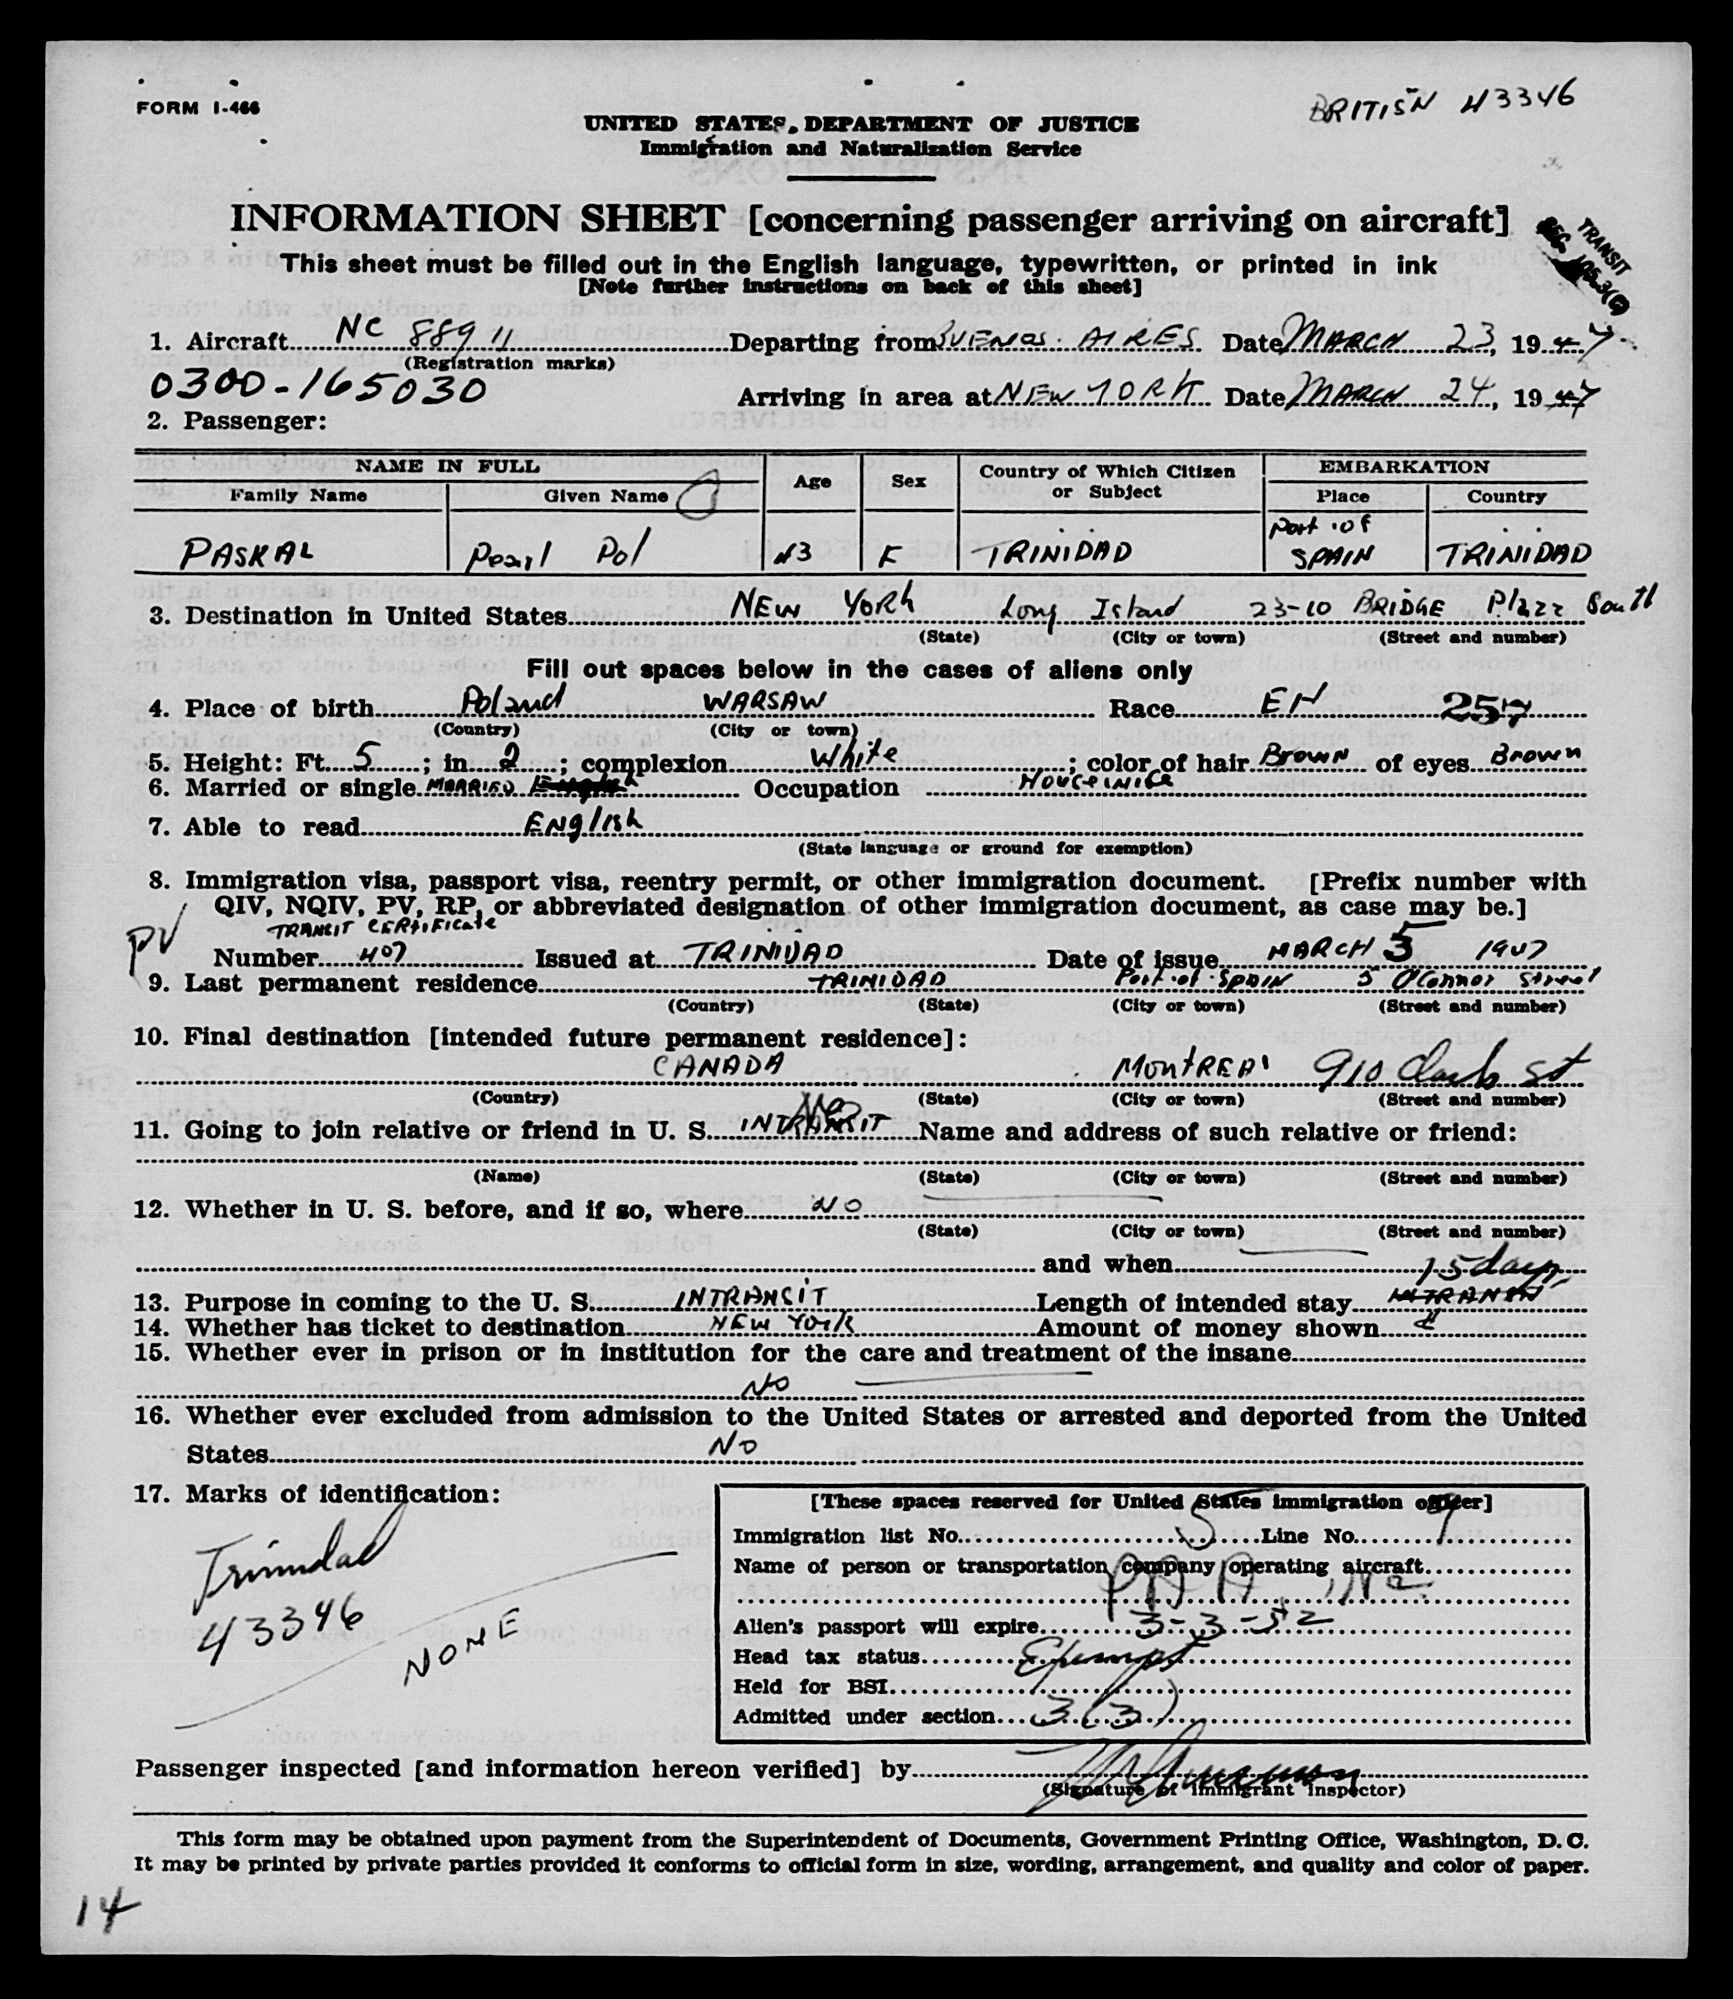 FORM I-466
BRITISH 43346
UNITED STATES DEPARTMENT OF JUSTICE
Immigration and Naturalization Service
INFORMATION SHEET [concerning passenger arriving on aircraft]
TRANSIT
This sheet must be filled out in the English language, typewritten, or printed in ink
[Note further instructions on back of this sheet]
1. Aircraft NC 88911 Departing from BUENOS AIRES Date MARCH 23, 1947
(Registration marks)
0300-165030
Arriving in area at NEW YORK Date MARCH 24, 1947
2. Passenger:
NAME IN FULL Age Sex Country of Which Citizen or Subject EMBARKATION
Family Name Given Name Place Country
PASKAL Pearl Pol 43 F TRINIDAD Port of SPAIN TRINIDAD
3. Destination in United States NEW YORK Long Island 23-10 BRIDGE Plaza South
(State) (City or town) (Street and number)
Fill out spaces below in the cases of aliens only
4. Place of birth Poland WARSAW Race 257
(Country) (City or town)
5. Height: Ft. 5; in. 2; complexion White; color of hair Brown of eyes Brown
6. Married or single MARRIED English Occupation HOUSEWIFE
7. Able to read English
(State language or ground for exemption)
8. Immigration visa, passport visa, reentry permit, or other immigration document. [Prefix number with
QIV, NQIV, PV, RP, or abbreviated designation of other immigration document, as case may be.]
PV TRANSIT CERTIFICATE
Number 407 Issued at TRINIDAD Date of issue MARCH 5 1947
9. Last permanent residence TRINIDAD Port of SPAIN 5 O'Connor Street
(Country) (State) (City or town) (Street and number)
10. Final destination [intended future permanent residence]:
CANADA MONTREAL 910 Clark St
(Country) (State) (City or town) (Street and number)
11. Going to join relative or friend in U. S. INTRANSIT Name and address of such relative or friend:
(Name) (State) (City or town) (Street and number)
12. Whether in U. S. before, and if so, where NO
(State) (City or town) (Street and number)
and when
15 days
13. Purpose in coming to the U. S. INTRANSIT Length of intended stay INTRANSIT
14. Whether has ticket to destination NEW YORK Amount of money shown
15. Whether ever in prison or in institution for the care and treatment of the insane
NO
16. Whether ever excluded from admission to the United States or arrested and deported from the United
States NO
17. Marks of identification:
Trinidad
43346
NONE
[These spaces reserved for United States immigration officer]
Immigration list No. 5 Line No. 9
Name of person or transportation company operating aircraft
PAA Inc.
Alien's passport will expire 3-3-52
Head tax status Exempt
Held for BSI
Admitted under section 3(3)
Passenger inspected [and information hereon verified] by
(Signature of immigrant inspector)
This form may be obtained upon payment from the Superintendent of Documents, Government Printing Office, Washington, D. C.
It may be printed by private parties provided it conforms to official form in size, wording, arrangement, and quality and color of paper.
14